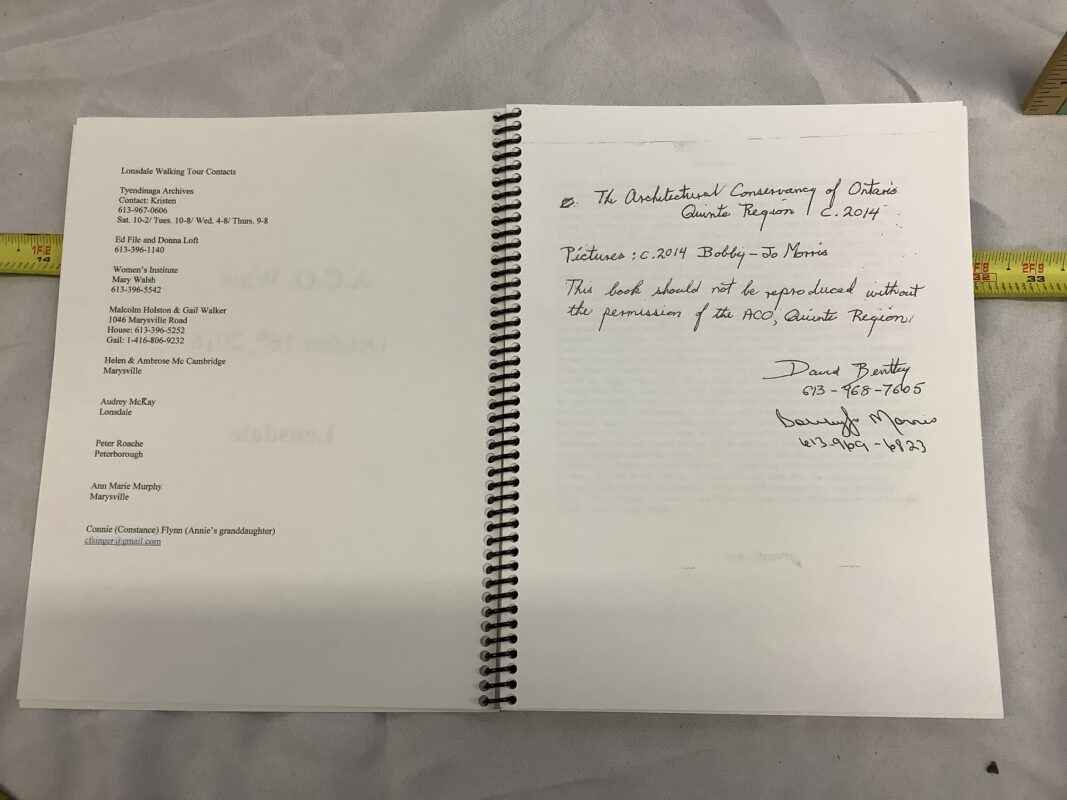 Lonsdale Walking Tour Contacts
Tyendinaga Archives
Contact: Kristen
613-967-0606
Sat. 10-2/ Tues. 10-8/ Wed. 4-8/ Thurs. 9-8
Ed File and Donna Loft
613-396-1140
Women's Institute
Mary Walsh
613-396-5542
Malcolm Holston & Gail Walker
1046 Marysville Road
House: 613-396-5252
Gail: 1-416-806-9232
Helen & Ambrose Mc Cambridge
Marysville
Audrey McKay
Lonsdale
Peter Roache
Peterborough
Ann Marie Murphy
Marysville
Connie (Constance) Flynn (Annie's granddaughter)
@gmail.com
The Architectural Conservancy of Ontario
Quinte Region c. 2014
Pictures: c. 2014 Bobby-Jo Morris
This book should not be reproduced without
the permission of the ACO, Quinte Region.
David Bentley
613-968-7605
Morris
613-969-6823
14
32
33